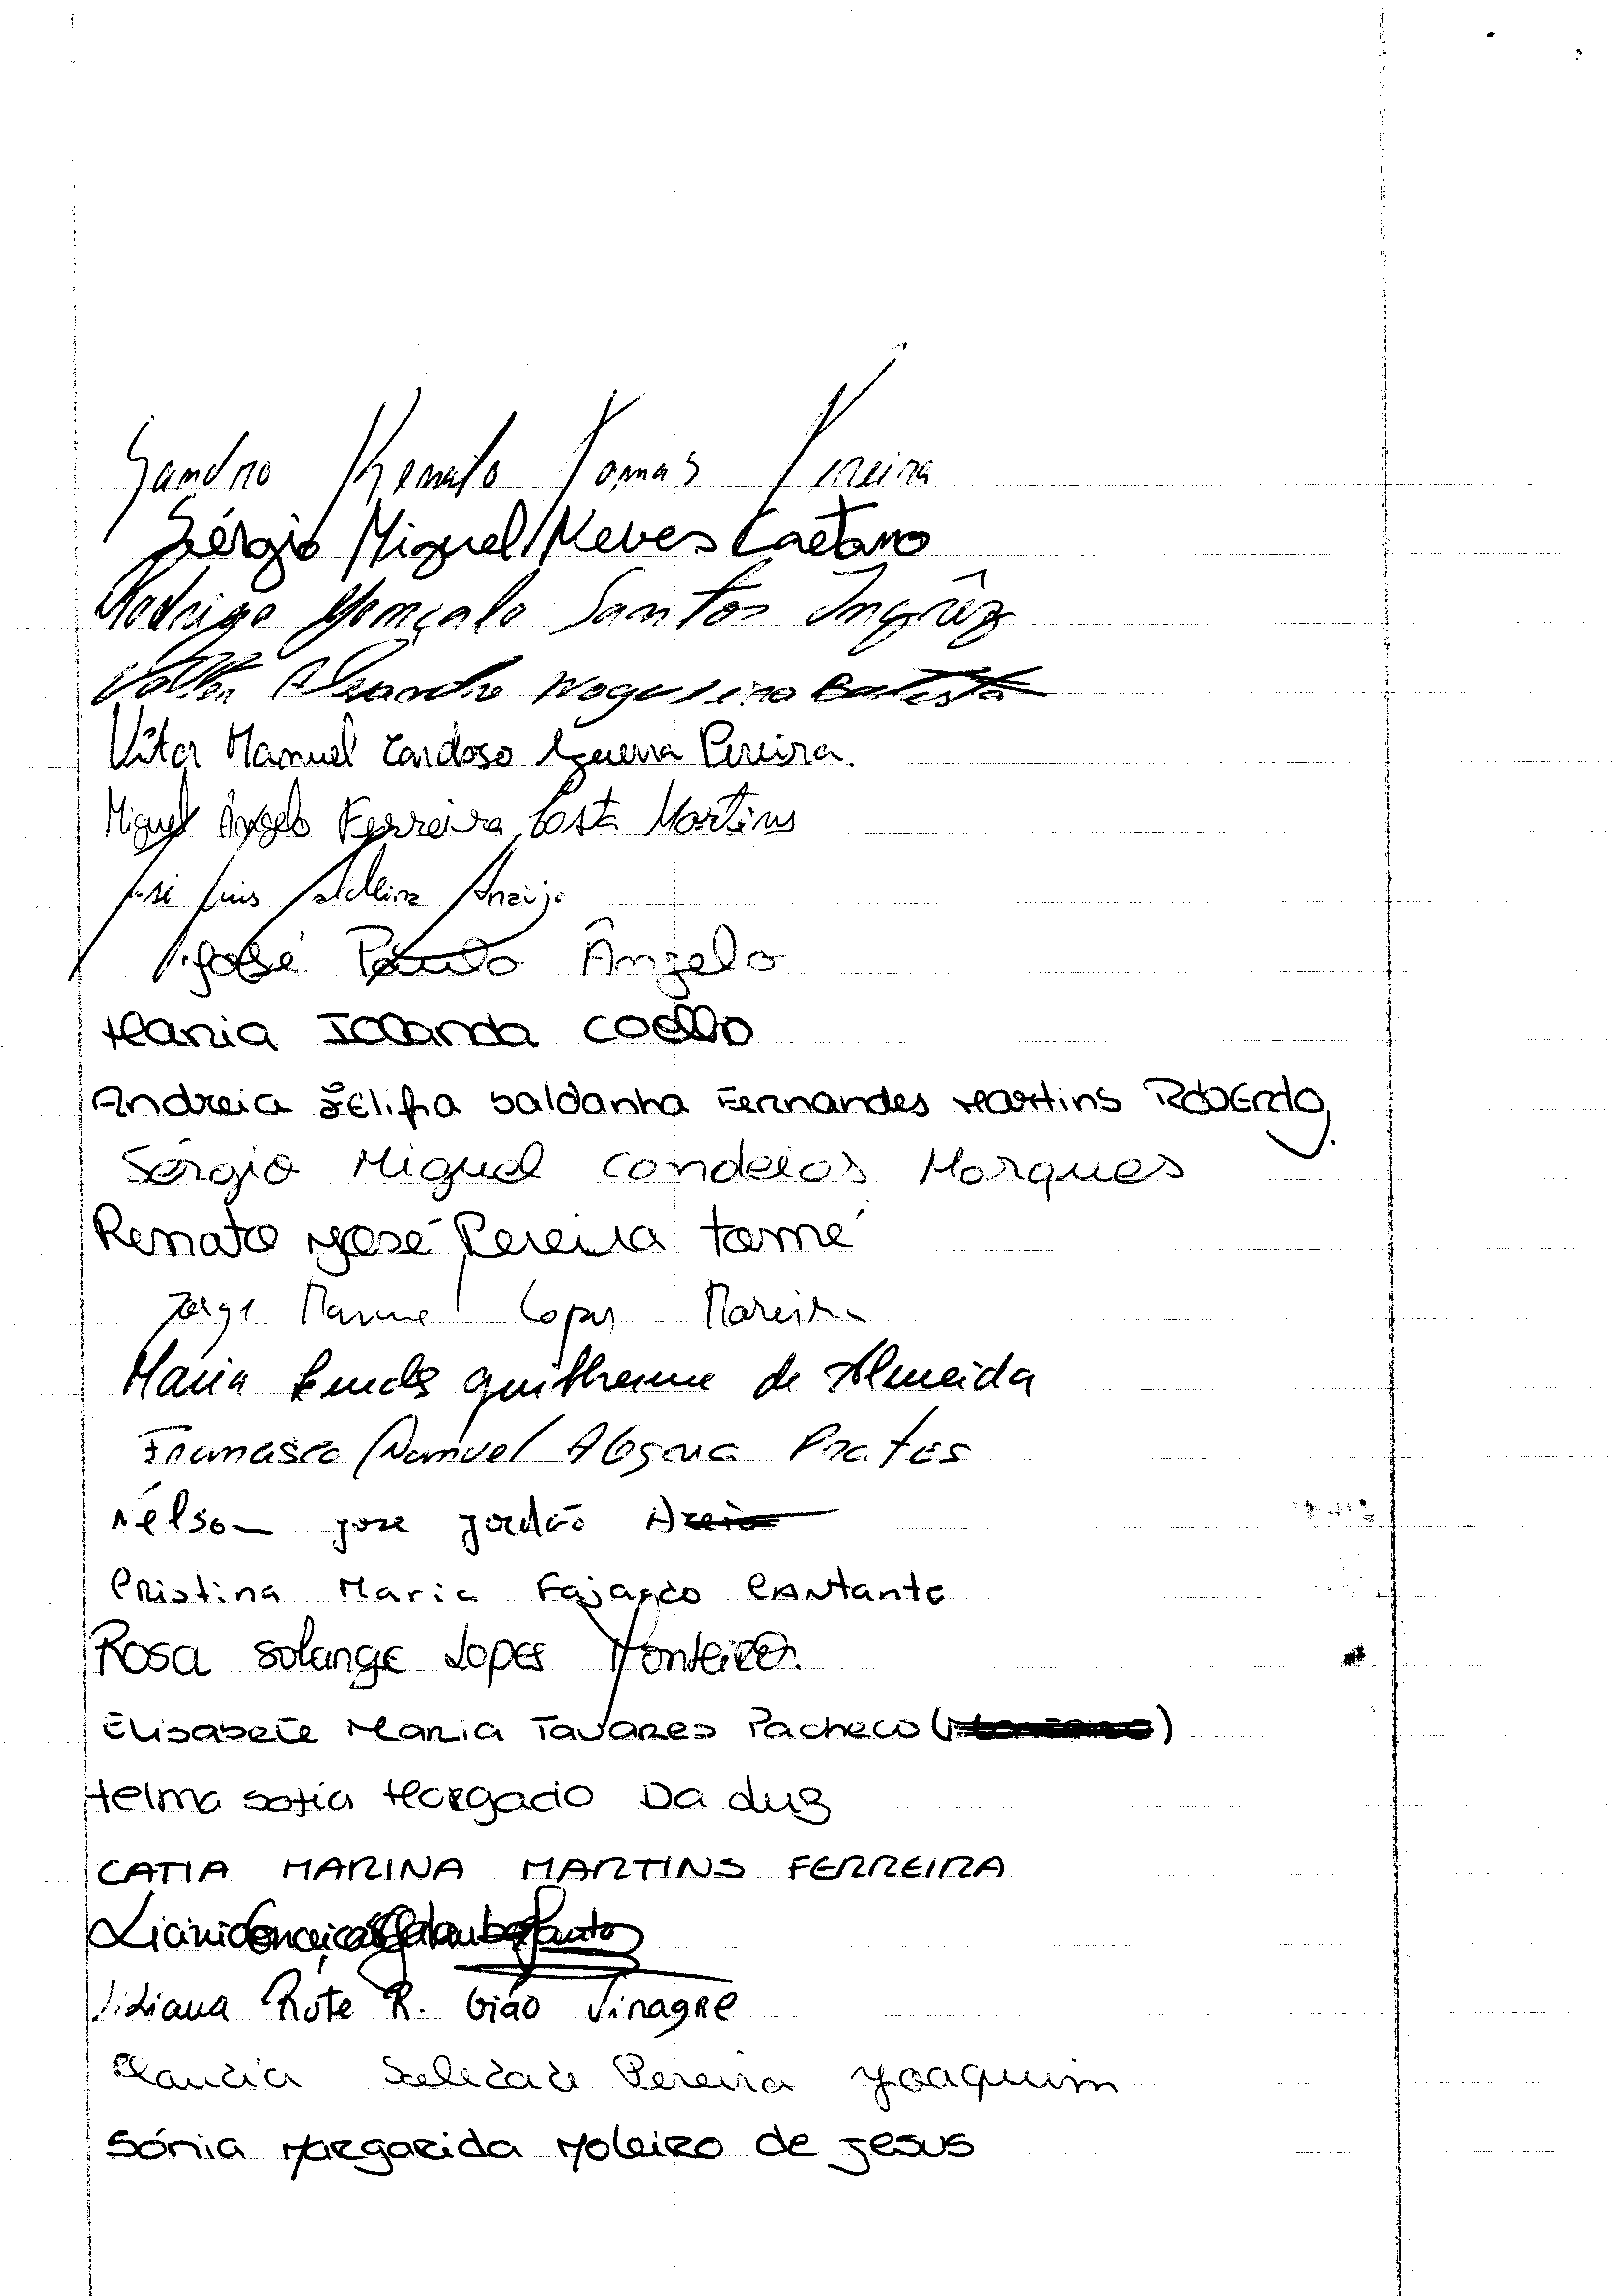 Sandro Renato Tomas Pereira
Sérgio Miguel Neves Caetano
Rodrigo Gonçalo Santos Ingrêz
Nogueira Batista
Vítor Manuel Cardoso Pereira.
Miguel Ângelo Ferreira Costa Martins
José Luis Caldeira Araújo
José Paulo Ângelo
Maria Iolanda Coelho
Andreia Saldanha Fernandes Martins Roberto
Sérgio Miguel Condeios Marques
Renato José Pereira Tomé
Jorge Manuel Lopes Moreira
Maria Guilherme de Almeida
Francisco Manuel Prates
Nelson José Jordão Areia
Cristina Maria Cantante
Rosa Solange Lopes Monteiro.
Elisabete Maria Tavares Pacheco
Telma Sofia Morgado Da Luz
CATIA MARINA MARTINS FERREIRA
Conceição
Rute R. Gião Vinagre
Claudia Soledade Pereira Joaquim
Sónia Margarida Moleiro de Jesus